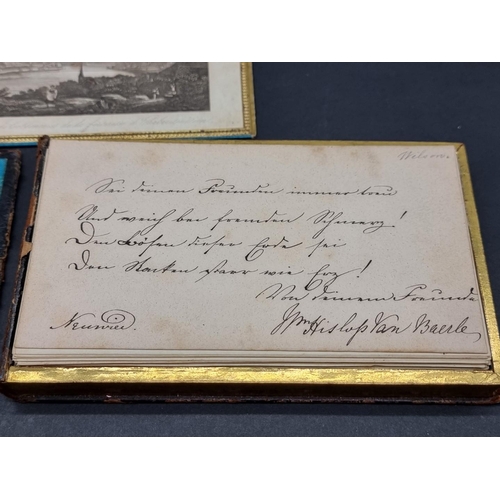 Sei deinen Freunden immer treu
Und weich bei fremden Schmerz!
Den Bösen dieser Erde sei
Den Starken starr wie Erz!
Von deinem Freunde
Neuwied. Wm Hislop Van Baerle